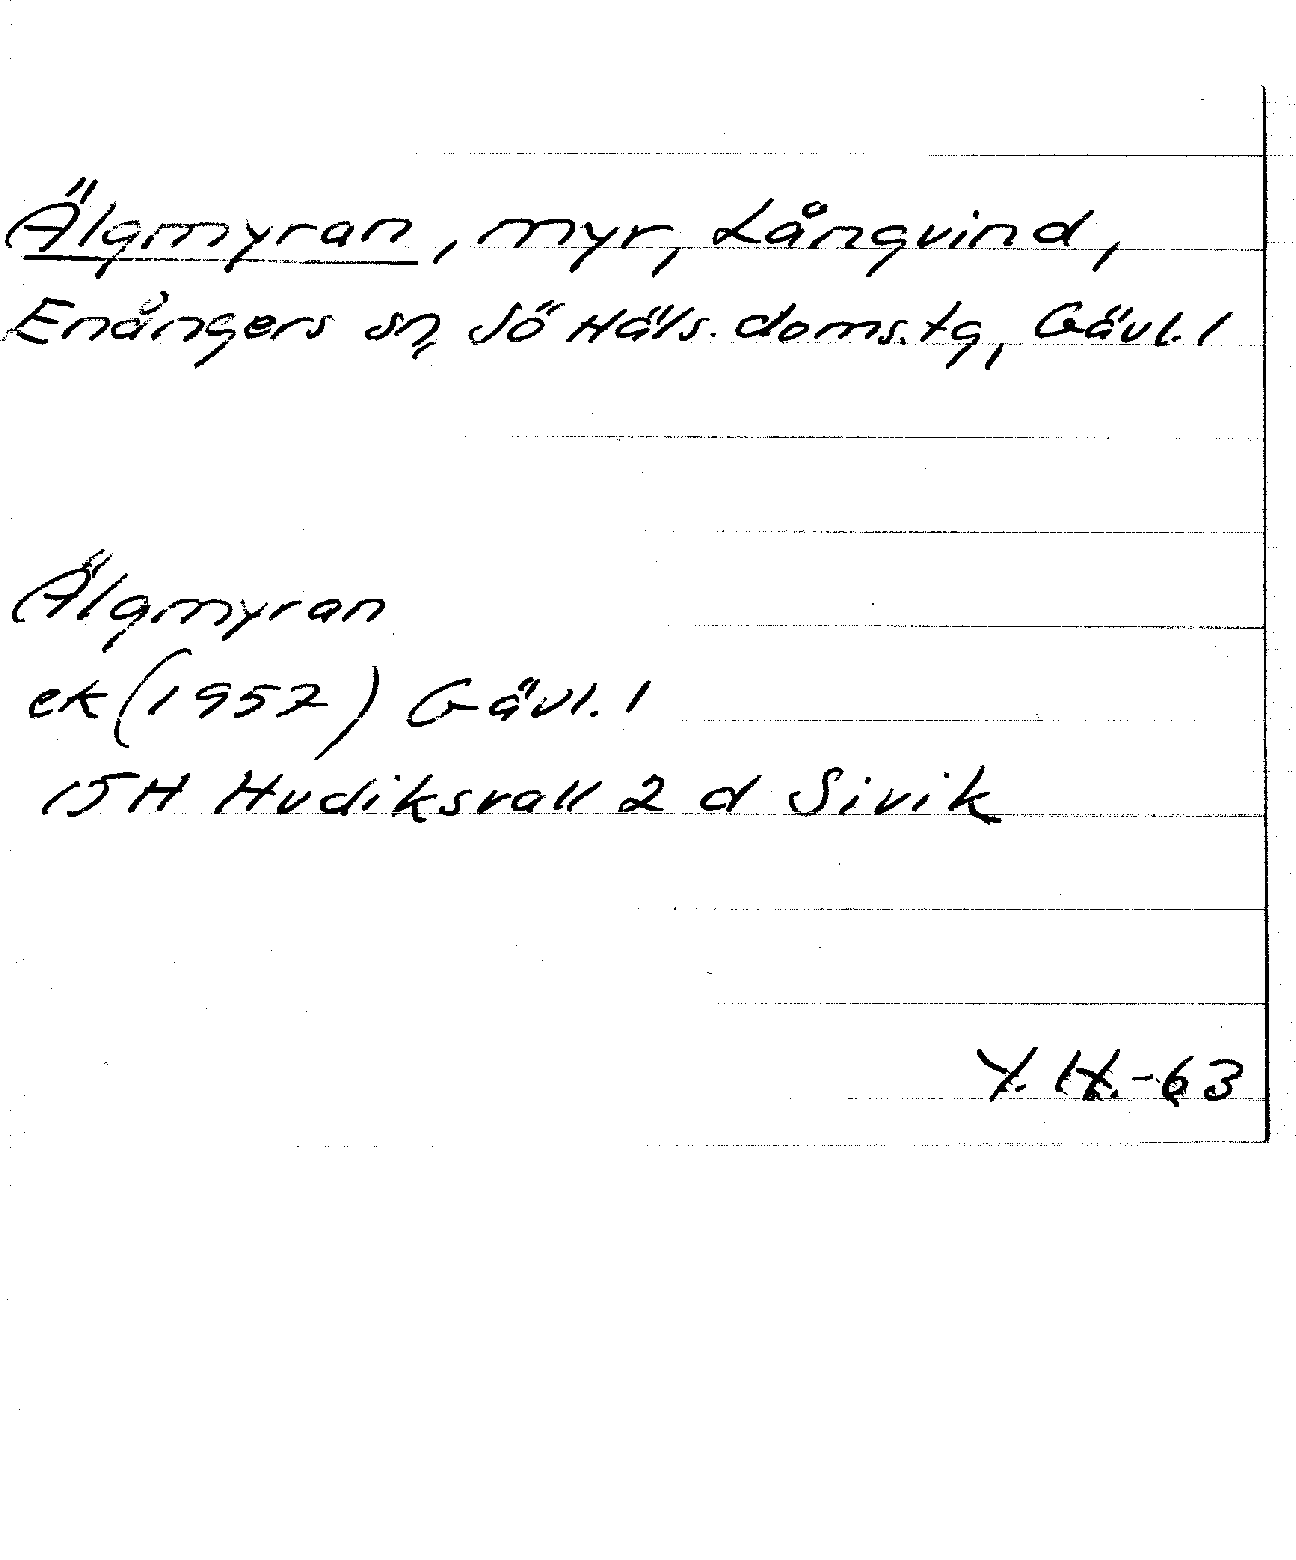 Älgmyran, myr, Långvind,
Enångers sn, Sö Häls. doms.tg, Gävl. l
Älgmyran
ek (1957) Gävl. l
15H Hudiksvall 2 d Sivik
Y. H.-63